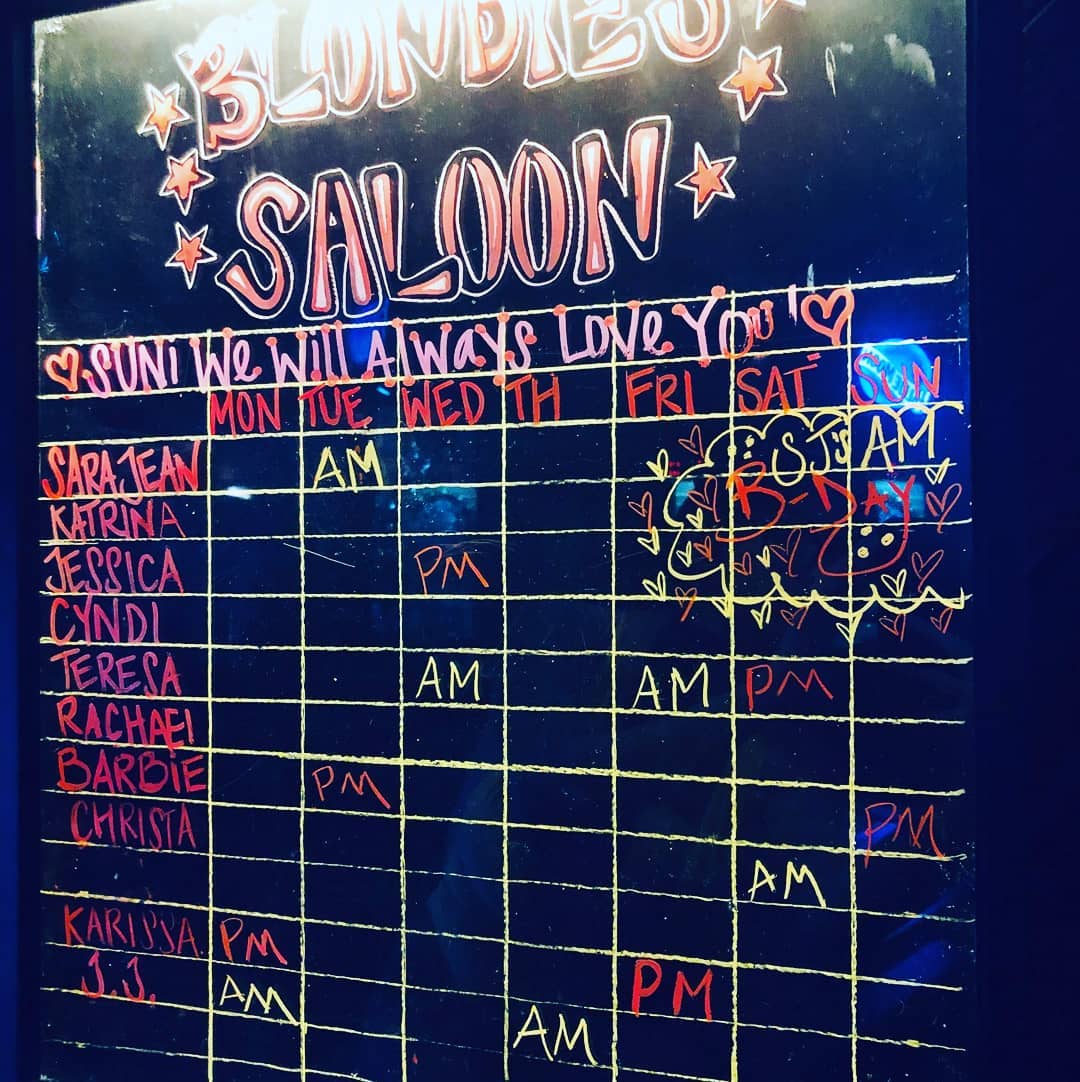 BLONDIES
SALOON
SUNI We Will Always Love You!
MON TUE WED TH FRI SAT SUN
SARAJEAN AM SJ's AM
KATRINA B-DAY
JESSICA PM
CYNDI
TERESA AM AM PM
RACHAEl
BARBiE PM
CHRISTA PM
AM
KARISSA PM
J.J. AM PM
AM